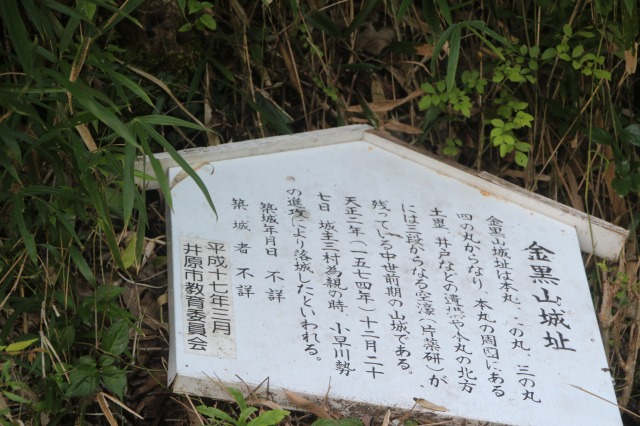 金黒山城址
金黒山城址は本丸、二の丸、三の丸
四の丸からなり、本丸の周囲にある
土塁、井戸などの遺構や本丸の北方
には三段からなる空濠（片薬研）が
残っている中世前期の山城である。
天正二年（一五七四年）十二月二十
七日 城主三村為親の時、小早川勢
の進攻により落城したといわれる。
築城年月日 不詳
築城者 不詳
平成十七年三月
井原市教育委員会